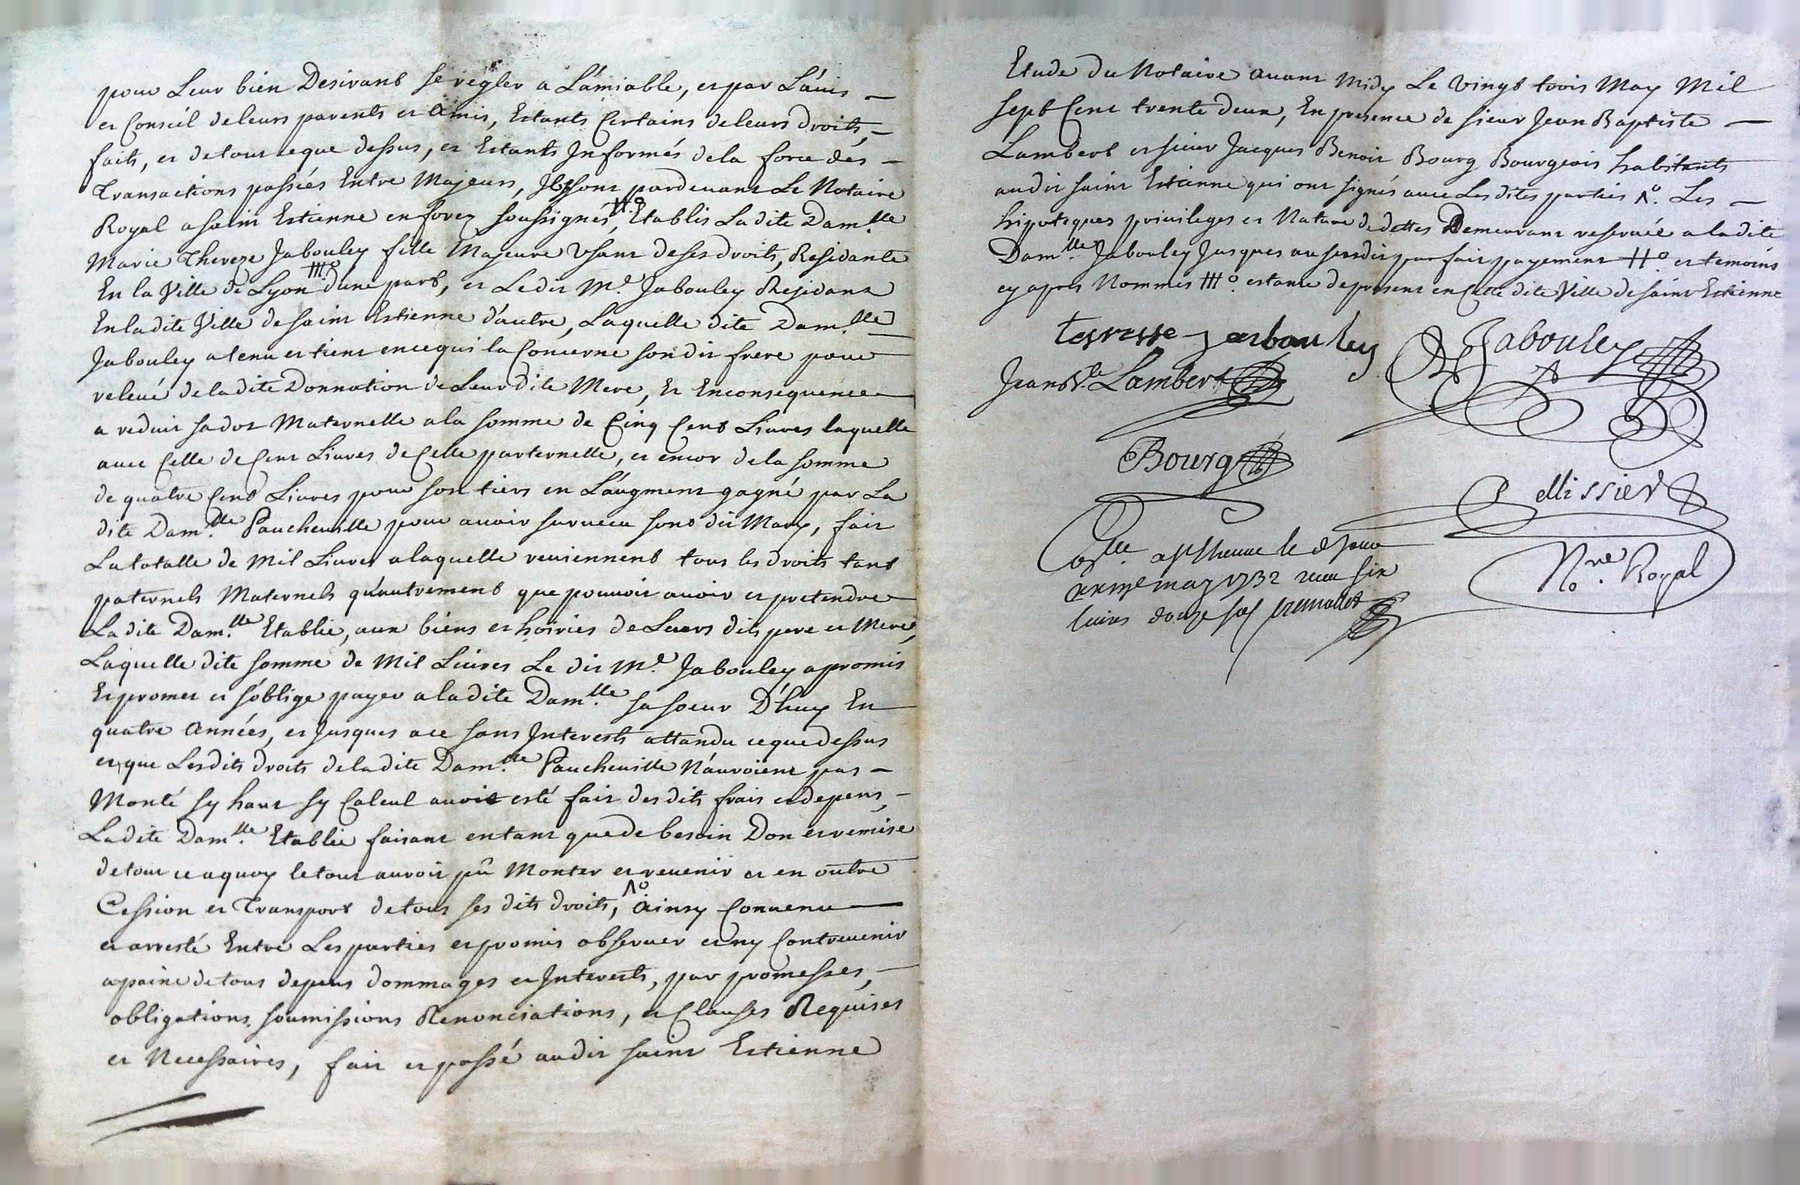 pour Leur bien Desirants se regler a L'amiable, et par L'avis —
et Conseil de leurs parents et Amis, Estants Certains de leurs droits, —
faits, et de tout ce que dessus, et Estants Informés de la force des —
transactions passées Entre Majeurs, Ils sont pardevant Le Notaire
Royal a saint Estienne en forez soussigné, H° Etablis Ladite Dam.lle
Marie Thereze Jabouley fille Majeure Usant de ses droits, Residante
En la Ville de Lyon III° d'une part, et Ledit M.e Jabouley Residant
En ladite Ville de saint Estienne d'autre, Laquelle dite Dam.lle
Jabouley a tenu et tient en ce qui la Concerne son dit frere pour
relevé de ladite Donnation de Leur dite Mere, Et En consequence
a reduit sa dot Maternelle a la somme de Cinq Cent Livres laquelle
avec Celle de Cent Livres de Celle parternelle, et encor de la somme
de quatre Cent Livres pour son tiers en L'augment gagné par La
dite Dam.lle Paucheville pour avoir survecu sond dit Mary, fait
La totalle de Mil Livres a laquelle reviennent tous les droits tant
paternels Maternels qu'autrement que pouvoit avoir et pretendre
Ladite Dam.lle Etablie, aux biens et hoiries de Leurs dits pere et Mere,
Laquelle dite somme de Mil Livres Le dit M.e Jabouley a promis
Et promet et s'oblige payer a ladite Dam.lle sa soeur D'huy En
quatre Années, et Jusques a ce sans Interests attandu ce que dessus
et que Lesdits droits de ladite Dam.lle Paucheville N'auroient pas —
Monté sy haut sy Calcul avoit esté fait des dits frais et depens, —
Ladite Dam.lle Etablie faisant en tant que de besoin Don et remise
de tout ce a quoy le tout auroit pû Monter et revenir et en outre
Cession et Transport de tous ses dits droits, Λ° ainsy Convenu
et arresté Entre Les parties et promis observer et ny Contrevenir
a paine de tous depens dommages et Interests, par promesses, —
obligations, soumissions Renonciations, et Clauses Requises
et Necessaires, fait et passé audit saint Estienne
Etude du Notaire avant Midy Le vingt trois May Mil
sept Cent trente deux, En presence de sieur Jean Baptiste —
Lambert et sieur Jacques Benoit Bourg Bourgeois habitants
audit saint Estienne qui ont signés avec Les dites parties Λ°. Les —
hipoteques privileges et Nature de dettes Demeurant reservée a ladite
Dam.lle Jabouley Jusques au susdit parfait payement H° et temoins
cy apres Nommés III° estante de present en Cette dite Ville de saint Estienne
terresse Jabouley
Jabouley
Jean B.te Lambert
Bourg
Pellissier
No.re Royal
Con.lle a St Etienne le
may 1732 receu six
livres douze sols